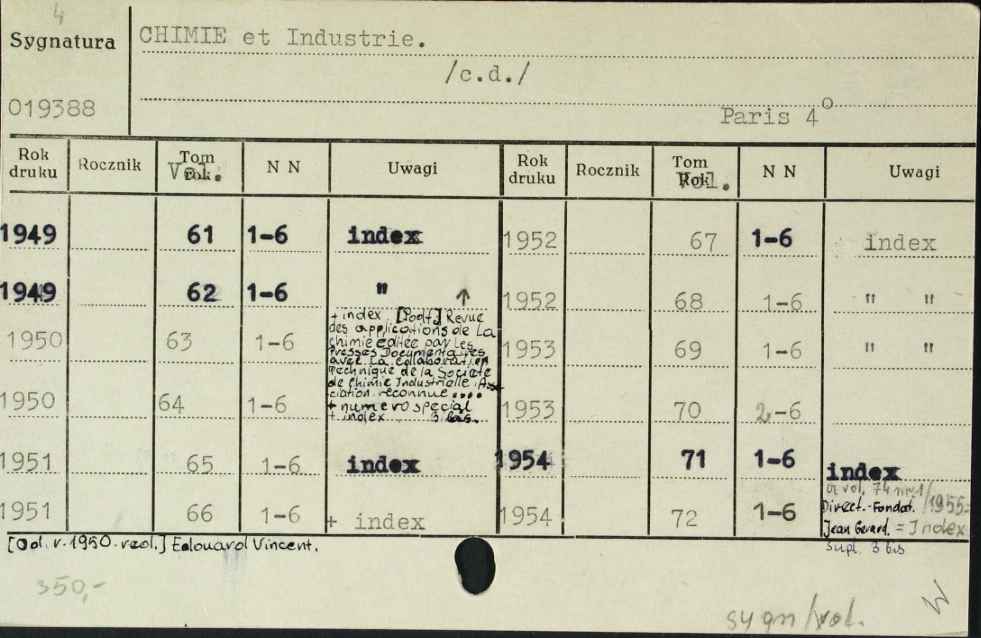 4
Sygnatura
CHIMIE et Industrie.
/c.d./
019388
Paris 4°
Rok druku Rocznik Tom Vol. N N Uwagi Rok druku Rocznik Tom Vol. N N Uwagi
1949 61 1-6 index 1952 67 1-6 index
1949 62 1-6 " ↑ 1952 68 1-6 " "
+ index. [Podt.] Revue
des applications de La
1950 63 1-6 chimie editée par Les 1953 69 1-6 " "
Presses Documentaires
avec La collaboration
Technique de la Société
de Chimie Industrielle Asso
ciation reconnue ....
1950 64 1-6 + numero special 1953 70 2-6
+ index. 3 bis.
1951 65 1-6 index 1954 71 1-6 index
1951 66 1-6 + index 1954 72 1-6
vol. 74 nr 1/1955:
Direct.-Fondat.
Jean Gerard. = Index
supl. 3 bis
[Od. r. 1950. red.] Edouard Vincent.
350,-
sygn/vol.